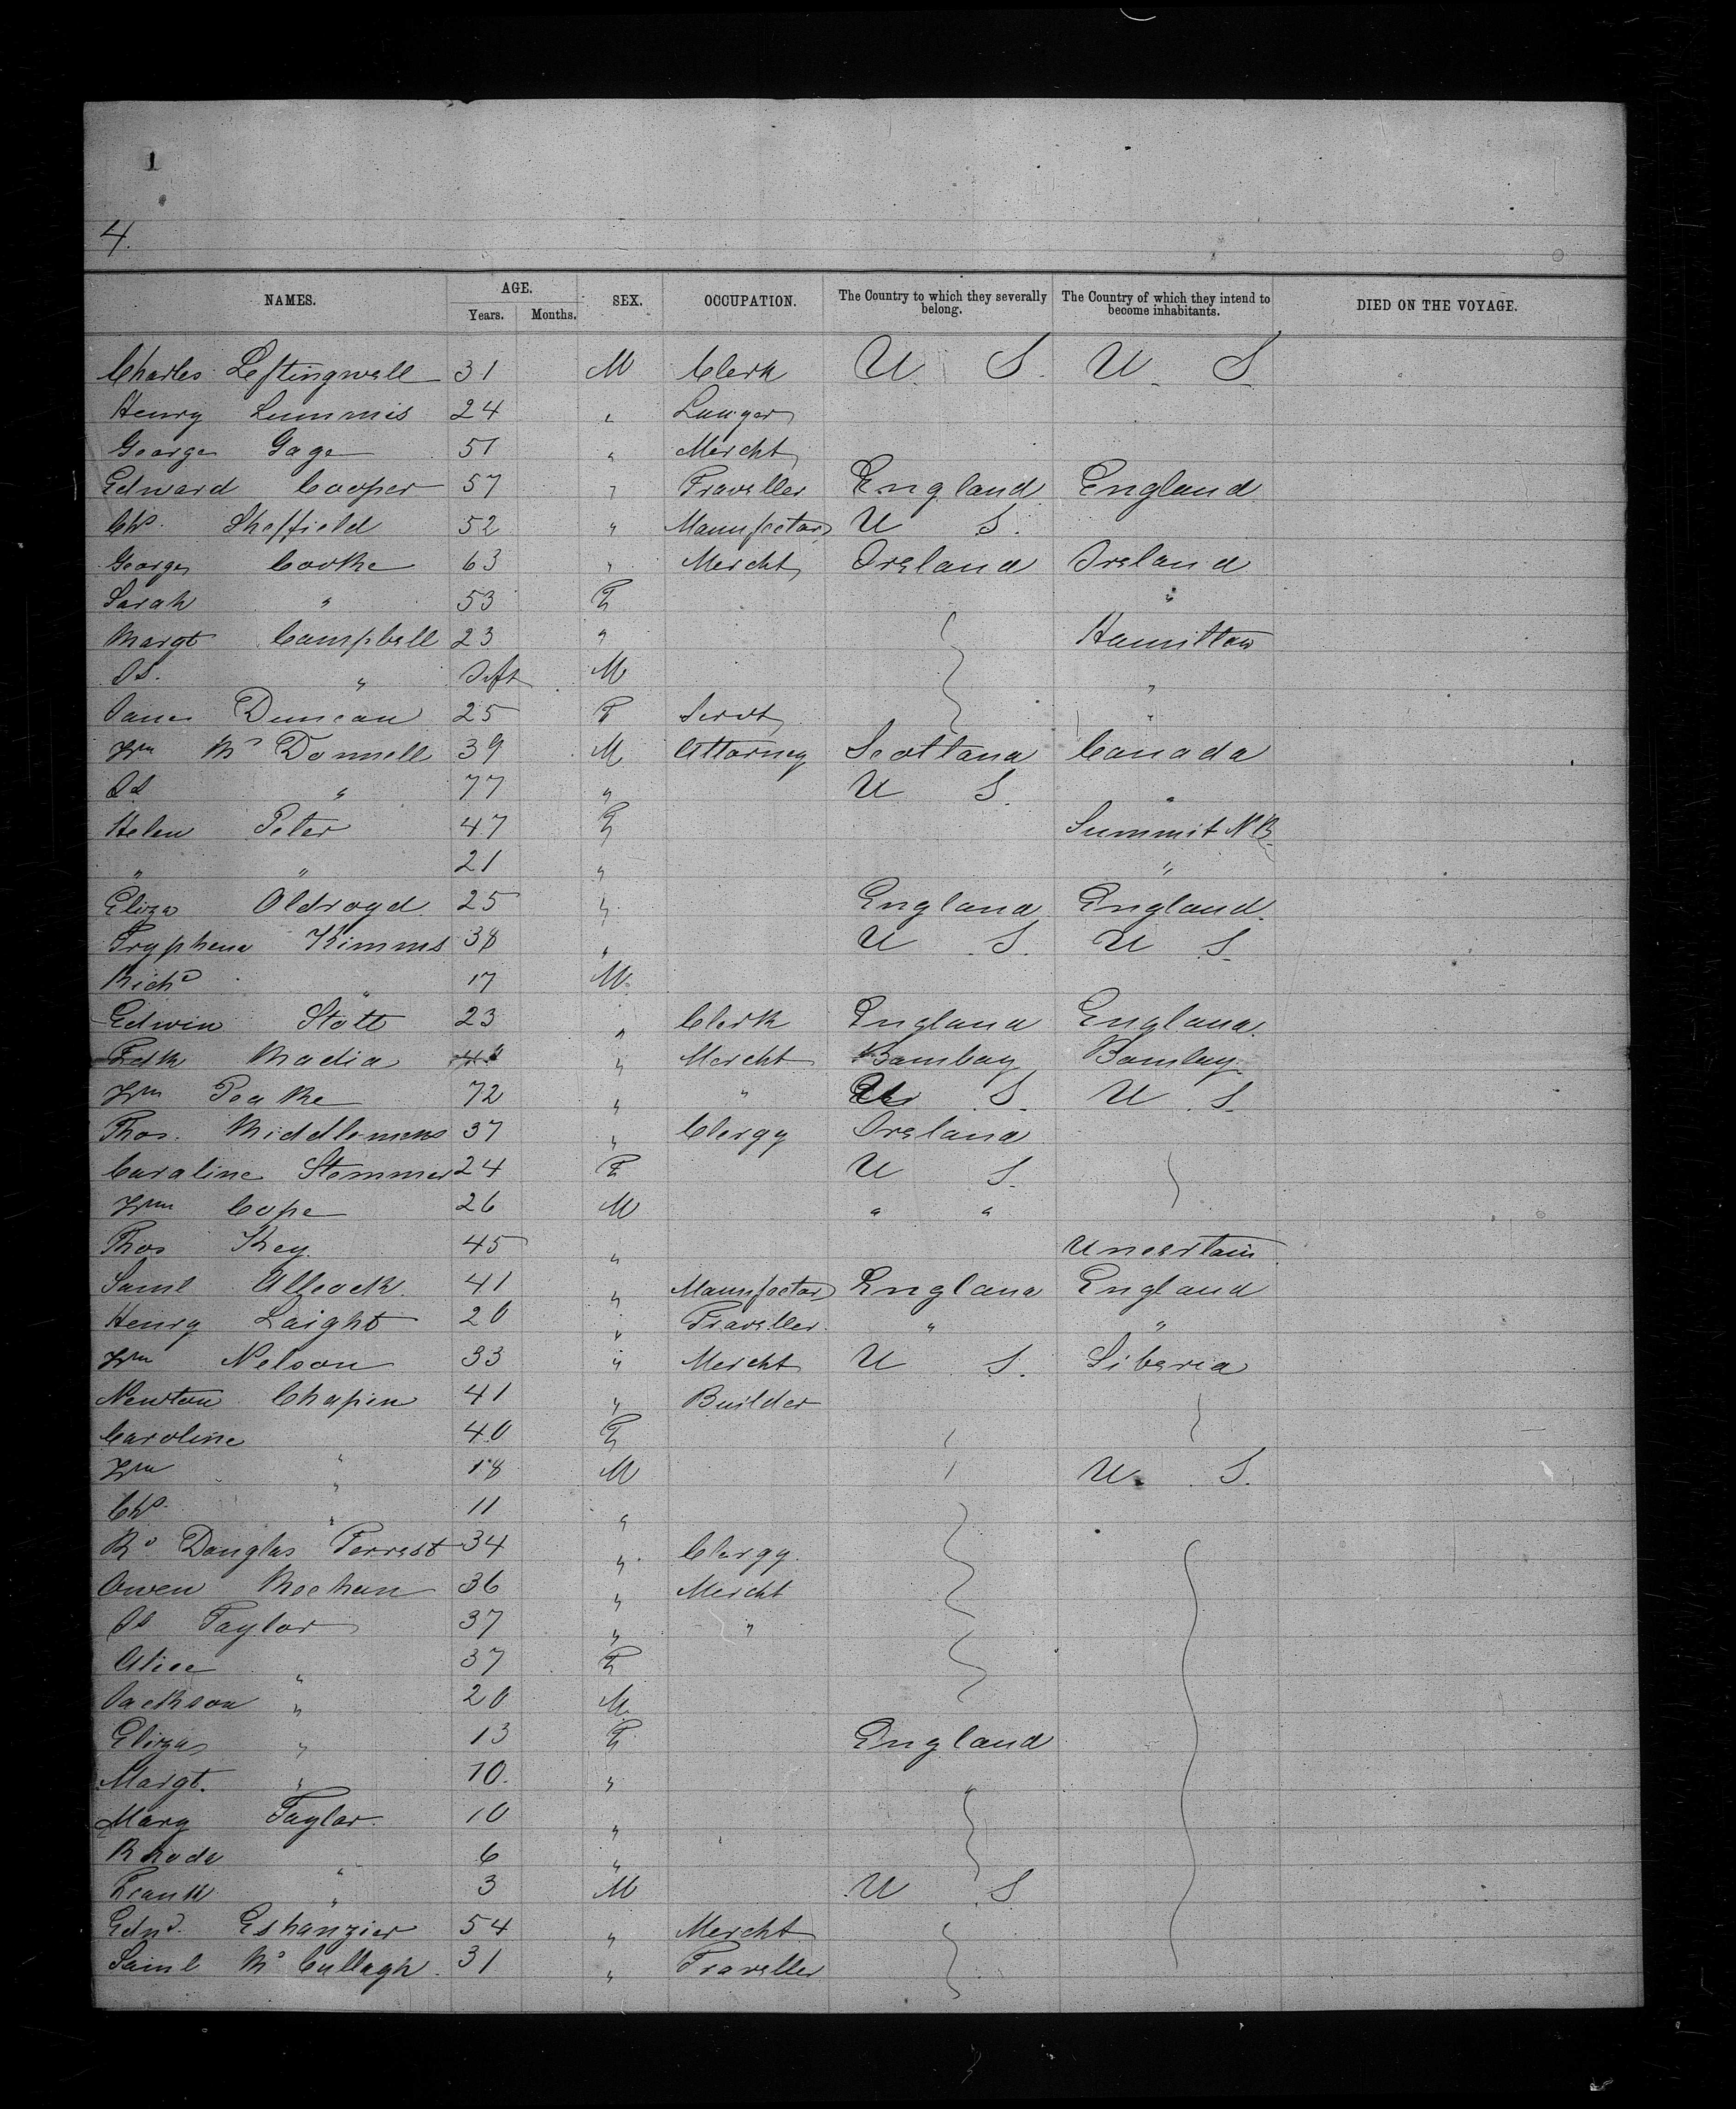 1
4.
NAMES. AGE. SEX. OCCUPATION. The Country to which they severally belong. The Country of which they intend to become inhabitants. DIED ON THE VOYAGE.
Years. Months.
Charles Leftingwell 31 M Clerk U. S. U. S.
Henry Lummis 24 " Lawyer
George Gage 51 " Mercht
Edward Cooper 57 " Traveller England England
Chs. Sheffield 52 " Manufactor U S.
George Cooke 63 " Mercht Ireland Ireland
Sarah " 53 F "
Margt Campbell 23 " Hamilton
Js. " Inft M "
Jane Duncan 25 F Servt "
Wm Mc Donnell 39 M Attorney Scotland Canada
Js " 77 " U S. "
Helen Peter 47 F Summit N.B.
" " 21 " "
Eliza Oldroyd 25 " England England.
Tryphena Kimms 38 " U S. U S.
Richd " 17 M
Edwin Stott 23 " Clerk England England.
Fedk Madia " Mercht Bombay Bombay
Wm Peake 72 " " U S. U. S.
Thos. Middlemens 37 " Clergy Ireland
Caroline Stemmer 24 F U S.
Wm Cope 26 M " "
Thos Key. 45 " Uncertain
Saml Allcock. 41 " Manufactor England England
Henry Laight 20 " Traveller. " "
Wm Nelson 33 " Mercht U S. Liberia
Newton Chapin 41 " Builder
Caroline " 40 F
Wm " 18 M U. S.
Chs. " 11 "
Rd Douglas Forrest 34 " Clergy.
Owen Meehan 36 " Mercht
Js Taylor 37 " "
Alice " 37 F
Jackson " 20 M.
Eliza " 13 F England
Margt. " 10. " "
Mary Taylor. 10 "
Rhoda " 6 "
Frank " 3 M U S
Edwd. Eshanzier 54 " Mercht
Saml Mc Cullagh. 31 " Traveller